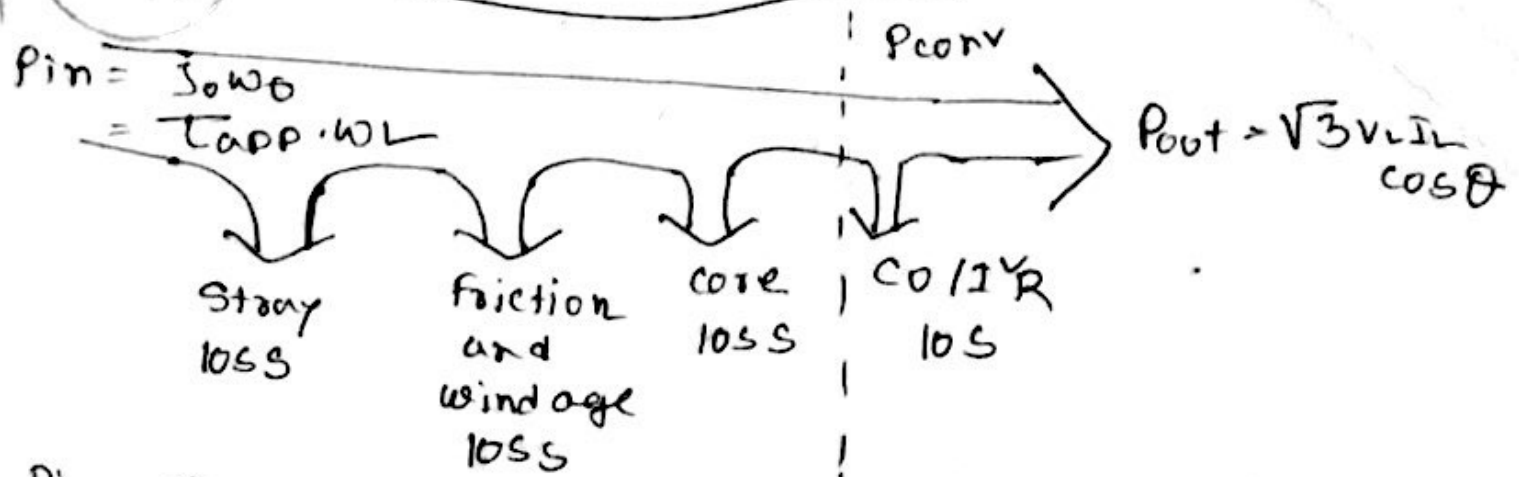 Pconv
Pin = J₀ω₀
= τapp·ωL
Pout = √3 VL IL
cosθ
Stray
loss
Friction
and
windage
loss
core
loss
CO/I²R
los